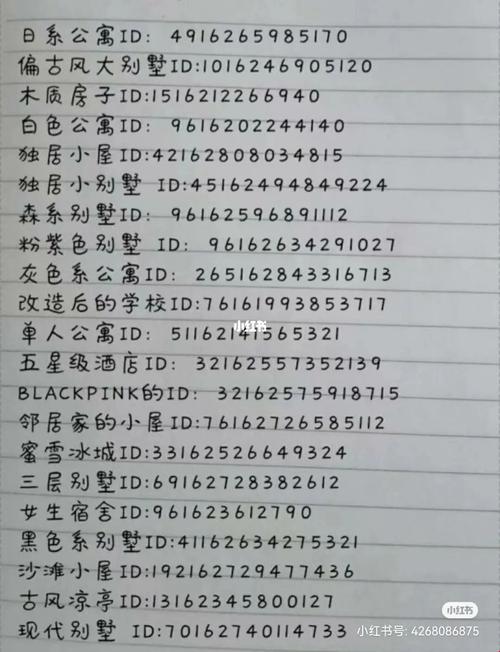 日系公寓ID: 4916265985170
偏古风大别墅ID:1016246905120
木质房子ID:1516212266940
白色公寓ID: 9616202244140
独居小屋ID:42162808034815
独居小别墅 ID:45162494849224
森系别墅ID: 96162596891112
粉紫色别墅 ID: 96162634291027
灰色系公寓ID: 265162843316713
改造后的学校ID:76161993853717
小红书
单人公寓ID: 51162141565321
五星级酒店ID: 32162557352139
BLACKPINK的ID: 32162575918715
邻居家的小屋ID:76162726585112
蜜雪冰城ID:33162526649324
三层别墅ID:69162728382612
女生宿舍ID:961623612790
黑色系别墅ID:41162634275321
沙滩小屋ID:192162729477436
古风凉亭ID:13162345800127
小红书
现代别墅 ID:70162740114733
小红书号: 4268086875